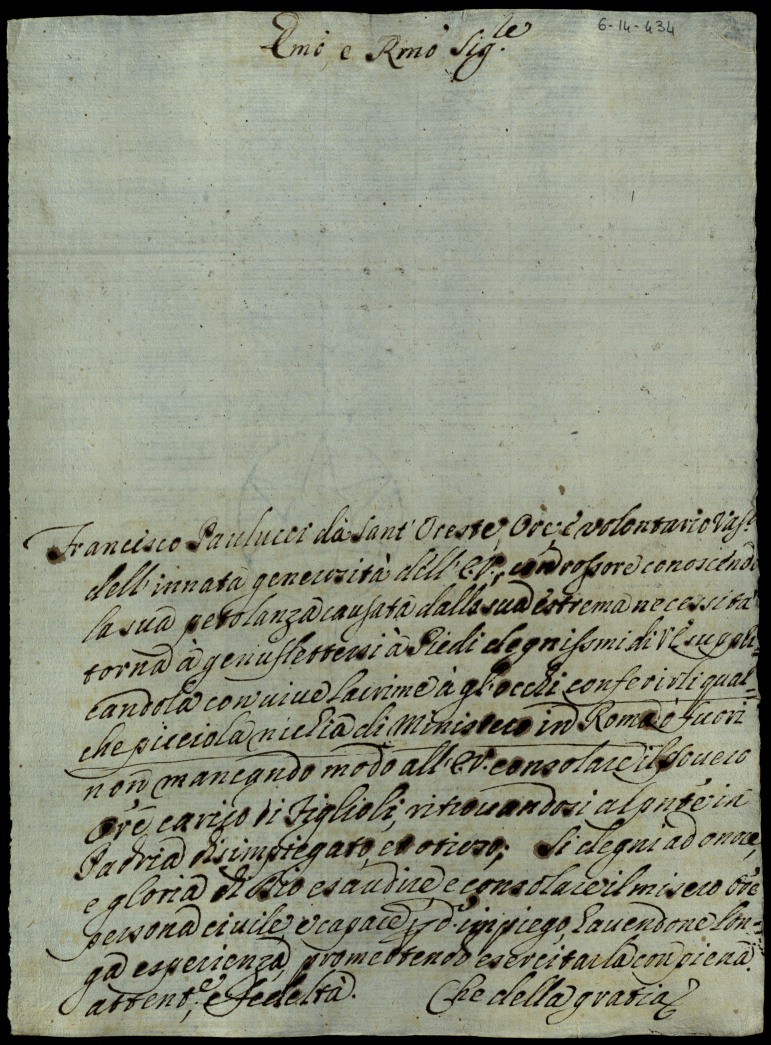 6-14-434
Emo, e Rmo Sig.re
Francisco Paulucci da Sant' Oreste, Ore, e volontario Vass
dell' innata generosità dell' E.V., con rossore conoscendo
la sua petolanza causata dalla sua estrema necessità
torna à genuflettersi à Piedi degnissmi di V.E. suppli-
candola con vive lacrime à gl' occhi conferirli qual-
che picciola nichia di Ministero in Roma, ò fuori
non mancando modo all' E.V. consolare il povero
Ore, carico di Figlioli, ritrovandosi al pnte in
Padria disimpiegato, et otioso; Si degni ad onore,
e gloria di Dio esaudire e consolare il misero Ore
persona civile e capace d' impiego, havendone lon-
ga esperienza, promettendo esercitarla con piena
attent.e, e fedeltà. Che della gratia